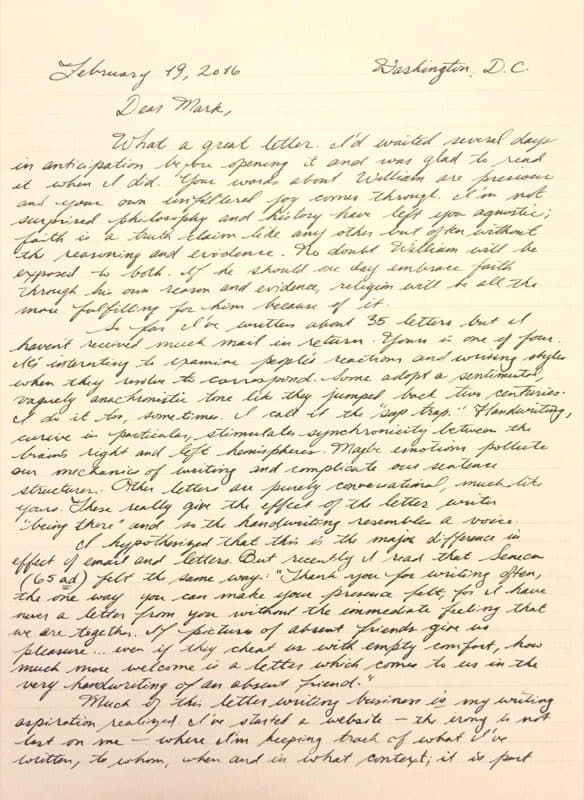 February 19, 2016 Washington, D.C.
Dear Mark,
What a great letter. I'd waited several days
in anticipation before opening it and was glad to read
it when I did. Your words about William are precious
and your own unfiltered joy comes through. I'm not
surprised philosophy and history have left you agnostic;
faith is a truth claim like any other but often without
the reasoning and evidence. No doubt William will be
exposed to both. If he should one day embrace faith
through his own reason and evidence, religion will be all the
more fulfilling for him because of it.
So far I've written about 35 letters but I
haven't received much mail in return. Yours is one of four.
It's interesting to examine people's reactions and writing styles
when they resolve to correspond. Some adopt a sentimental,
vaguely anachronistic tone like they jumped back two centuries.
I do it too, sometimes. I call it the "sap trap." Handwriting,
cursive in particular, stimulates synchronicity between the
brain's right and left hemispheres. Maybe emotions pollute
our mechanics of writing and complicate our sentence
structures. Other letters are purely conversational, much like
yours. These really give the effect of the letter writer
"being there" and so the handwriting resembles a voice.
I hypothesized that this is the major difference in
effect of email and letters. But recently I read that Seneca
(65 ad) felt the same way: "Thank you for writing often,
the one way you can make your presence felt, for I have
never a letter from you without the immediate feeling that
we are together. If pictures of absent friends give us
pleasure... even if they cheat us with empty comfort, how
much more welcome is a letter which comes to us in the
very handwriting of an absent friend."
Much of this letter writing business is my writing
aspiration realized. I've started a website — the irony is not
lost on me — where I'm keeping track of what I've
written, to whom, when and in what context; it is part